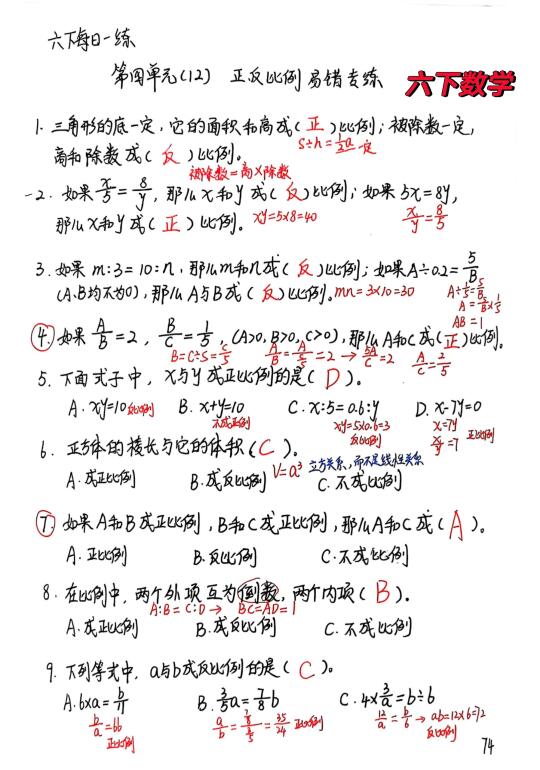 六下每日一练
第四单元(12) 正反比例易错专练 六下数学
1. 三角形的底一定,它的面积和高成(正)比例;被除数一定,
S÷h=½a 一定
商和除数成(反)比例。
被除数=商×除数
2. 如果x/5=8/y,那么x和y成(反)比例;如果5x=8y,
那么x和y成(正)比例。 xy=5×8=40 x/y=8/5
3. 如果m:3=10:n,那么m和n成(反)比例;如果A÷0.2=5/B
(A.B均不为0),那么A与B成(反)比例。 mn=3×10=30 A÷1/5=5/B
A=5/B×1/5
AB=1
4. 如果A/B=2,B/C=1/5,(A>0,B>0,C>0),那么A和C成(正)比例。
B=C÷5=C/5 A/B=A/(C/5)=2→5A/C=2 A/C=2/5
5. 下面式子中,x与y成正比例的是(D)。
A. xy=10 反比例 B. x+y=10 C. x:5=0.6:y D. x-7y=0
不成正例 xy=5×0.6=3 x=7y
反比例 x/y=7 正比例
6. 正方体的棱长与它的体积(C)。
V=a³ 立方关系,而不是线性关系
A. 成正比例 B. 成反比例 C. 不成比例
7. 如果A和B成正比例,B和C成正比例,那么A和C成(A)。
A. 正比例 B. 反比例 C. 不成比例
8. 在比例中,两个外项互为倒数,两个内项(B)。
A:B=C:D→ BC=AD=1
A. 成正比例 B. 成反比例 C. 不成比例
9. 下列等式中,a与b成反比例的是(C)。
A. 6×a=b/11 B. 3/5a=7/8b C. 4×3/a=b÷6
b/a=66 a/b=(7/8)/(3/5)=35/24 正比例 12/a=b/6→ab=12×6=72
正比例 反比例
74